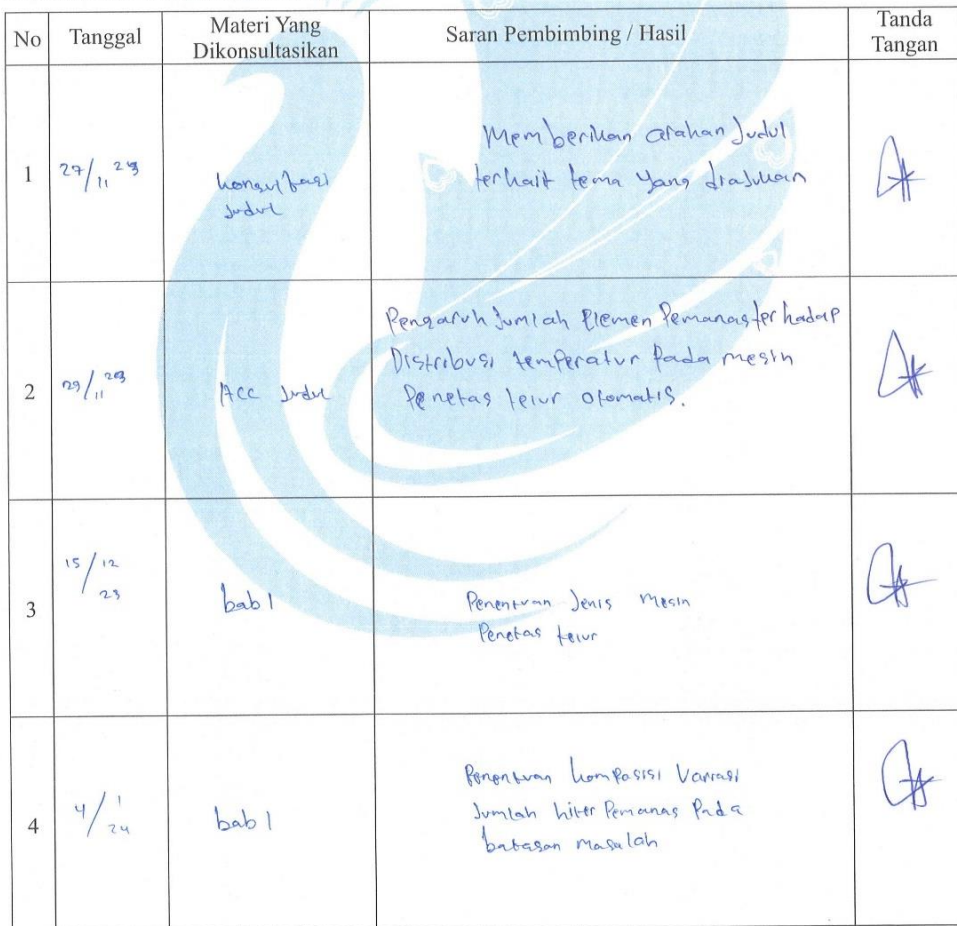 No Tanggal Materi Yang Dikonsultasikan Saran Pembimbing / Hasil Tanda Tangan
1 27/11 23 konsultasi Memberikan arahan Judul
Judul terkait tema yang diajukan
2 29/11 23 Acc Judul Pengaruh Jumlah Elemen Pemanas terhadap
Distribusi temperatur Pada mesin
Penetas telur otomatis.
3 15/12 23 bab 1 Penentuan Jenis mesin
Penetas telur
4 4/1 24 bab 1 Penentuan komposisi Variasi
Jumlah hiter Pemanas Pada
batasan masalah